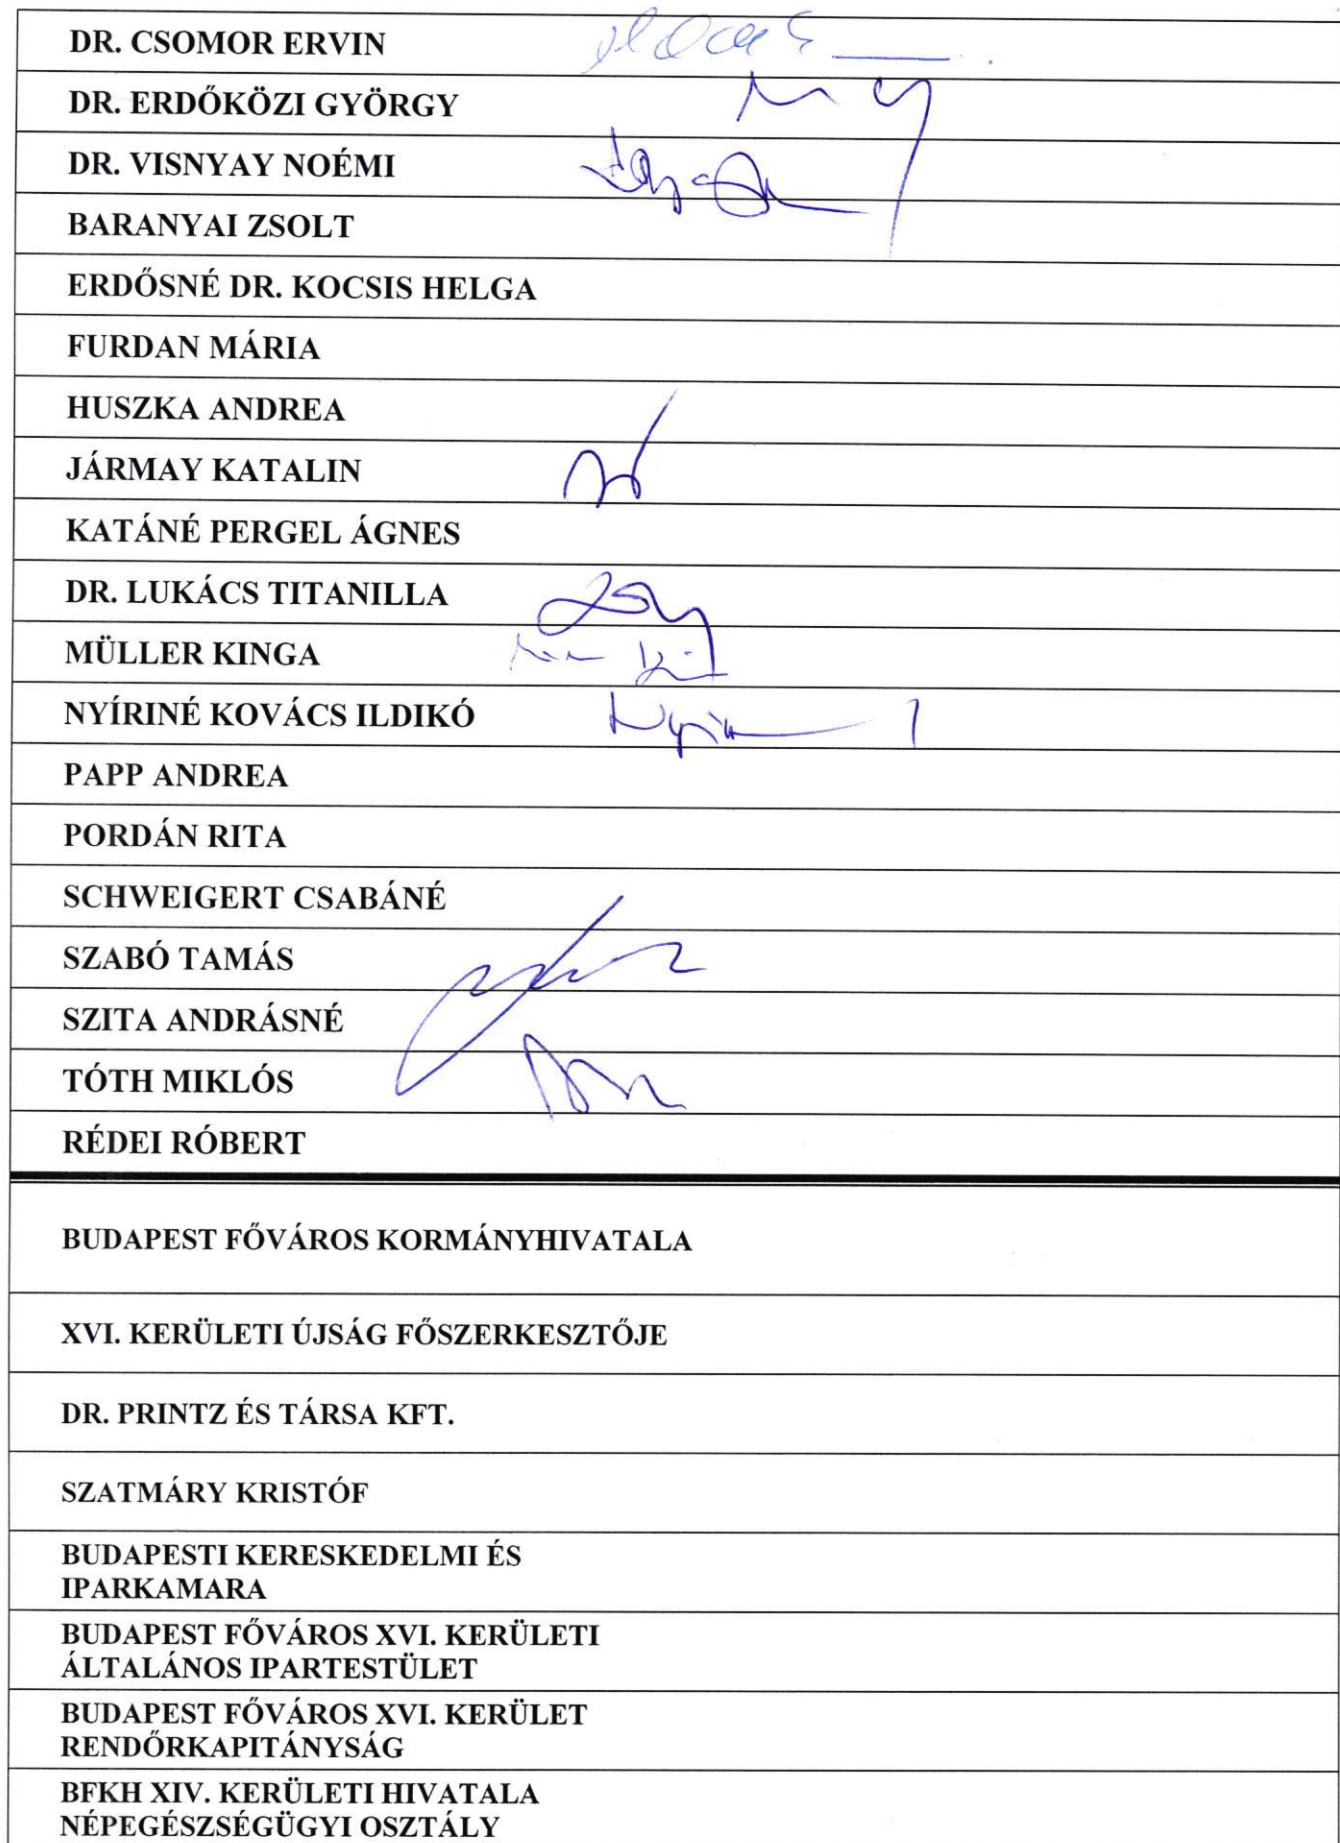 DR. CSOMOR ERVIN
DR. ERDŐKÖZI GYÖRGY
DR. VISNYAY NOÉMI
BARANYAI ZSOLT
ERDŐSNÉ DR. KOCSIS HELGA
FURDAN MÁRIA
HUSZKA ANDREA
JÁRMAY KATALIN
KATÁNÉ PERGEL ÁGNES
DR. LUKÁCS TITANILLA
MÜLLER KINGA
NYÍRINÉ KOVÁCS ILDIKÓ
PAPP ANDREA
PORDÁN RITA
SCHWEIGERT CSABÁNÉ
SZABÓ TAMÁS
SZITA ANDRÁSNÉ
TÓTH MIKLÓS
RÉDEI RÓBERT
BUDAPEST FŐVÁROS KORMÁNYHIVATALA
XVI. KERÜLETI ÚJSÁG FŐSZERKESZTŐJE
DR. PRINTZ ÉS TÁRSA KFT.
SZATMÁRY KRISTÓF
BUDAPESTI KERESKEDELMI ÉS
IPARKAMARA
BUDAPEST FŐVÁROS XVI. KERÜLETI
ÁLTALÁNOS IPARTESTÜLET
BUDAPEST FŐVÁROS XVI. KERÜLET
RENDŐRKAPITÁNYSÁG
BFKH XIV. KERÜLETI HIVATALA
NÉPEGÉSZSÉGÜGYI OSZTÁLY